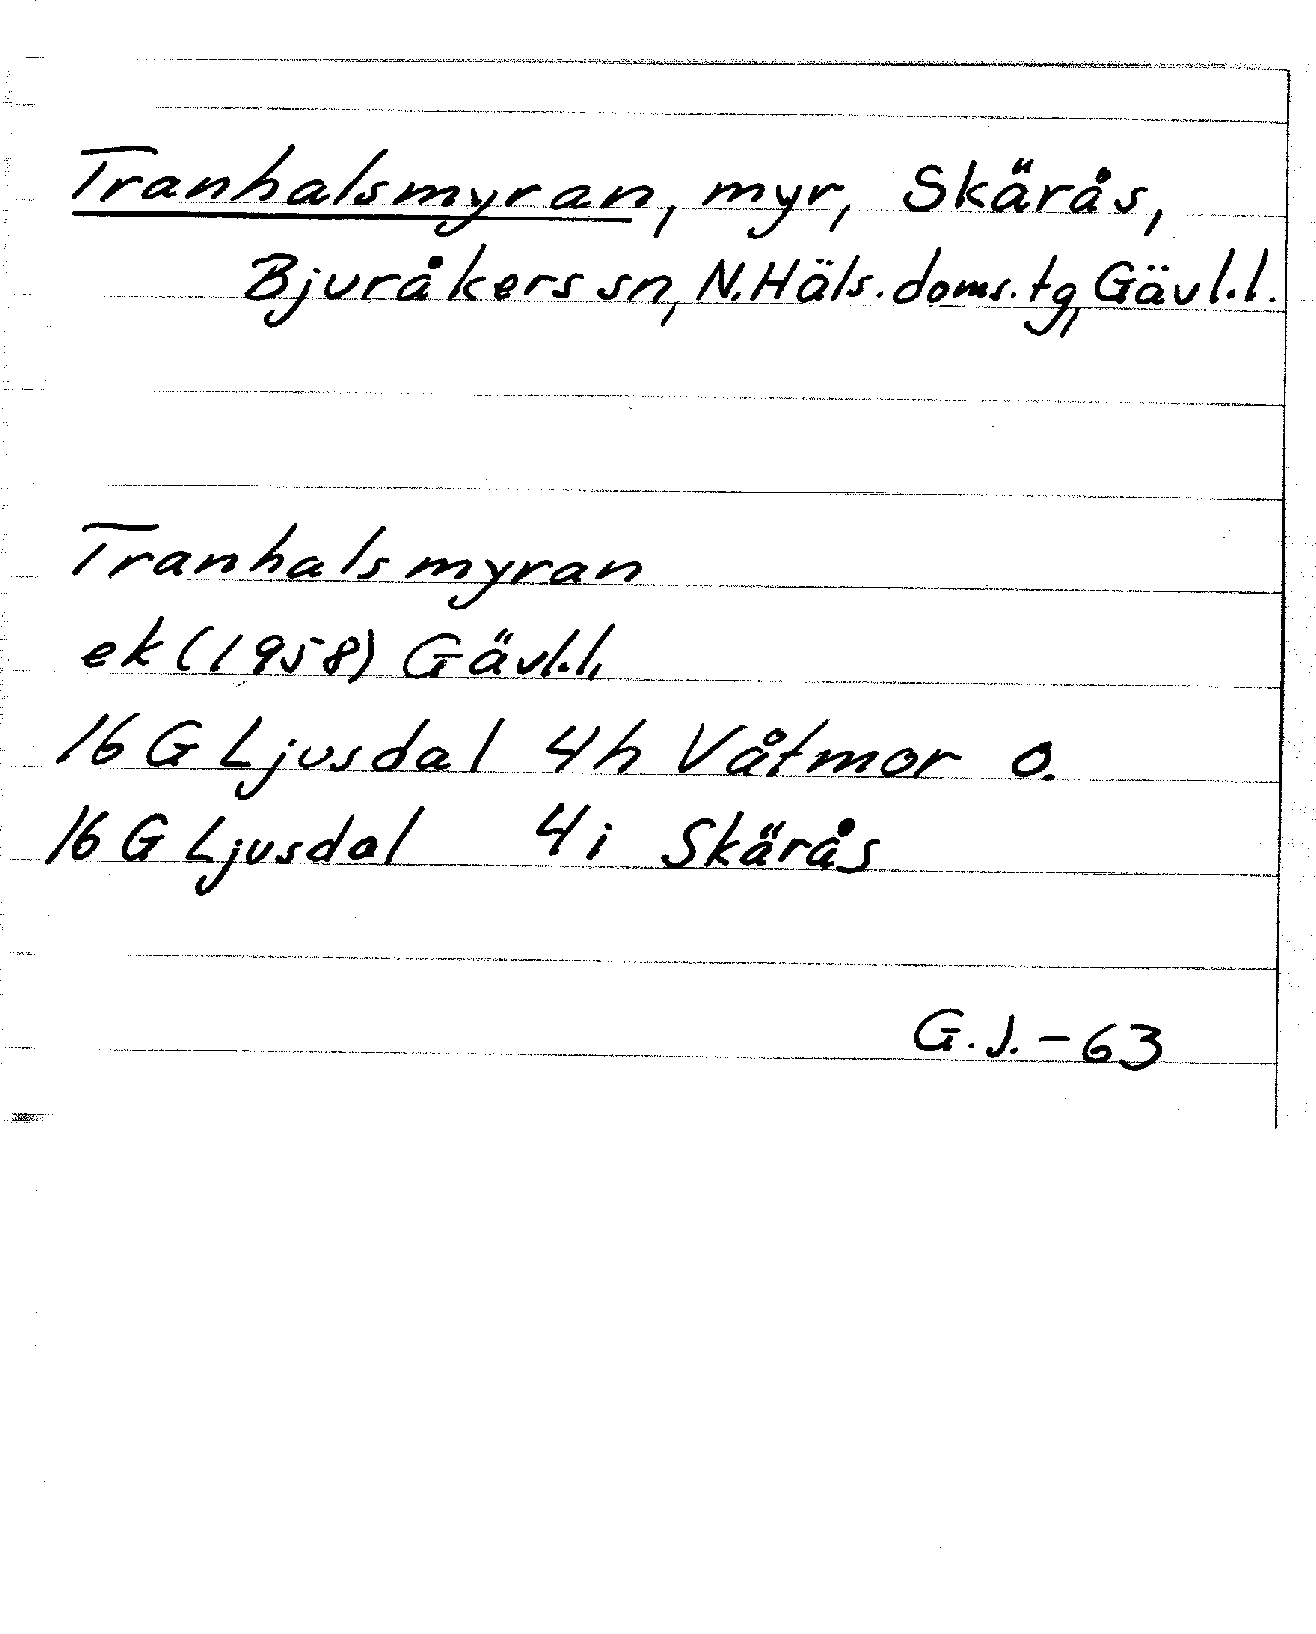 Tranhalsmyran, myr, Skärås,
Bjuråkers sn, N. Häls. doms. tg, Gävl. l.
Tranhalsmyran
ek (1958) Gävl. l.
16 G Ljusdal 4h Våtmor o.
16 G Ljusdal 4i Skärås
G. J. - 63